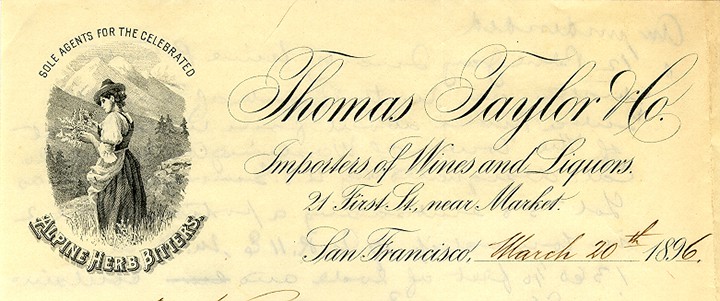 SOLE AGENTS FOR THE CELEBRATED
ALPINE HERB BITTERS.
Thomas Taylor & Co.
Importers of Wines and Liquors.
21 First St., near Market.
San Francisco, March 20th 1896.